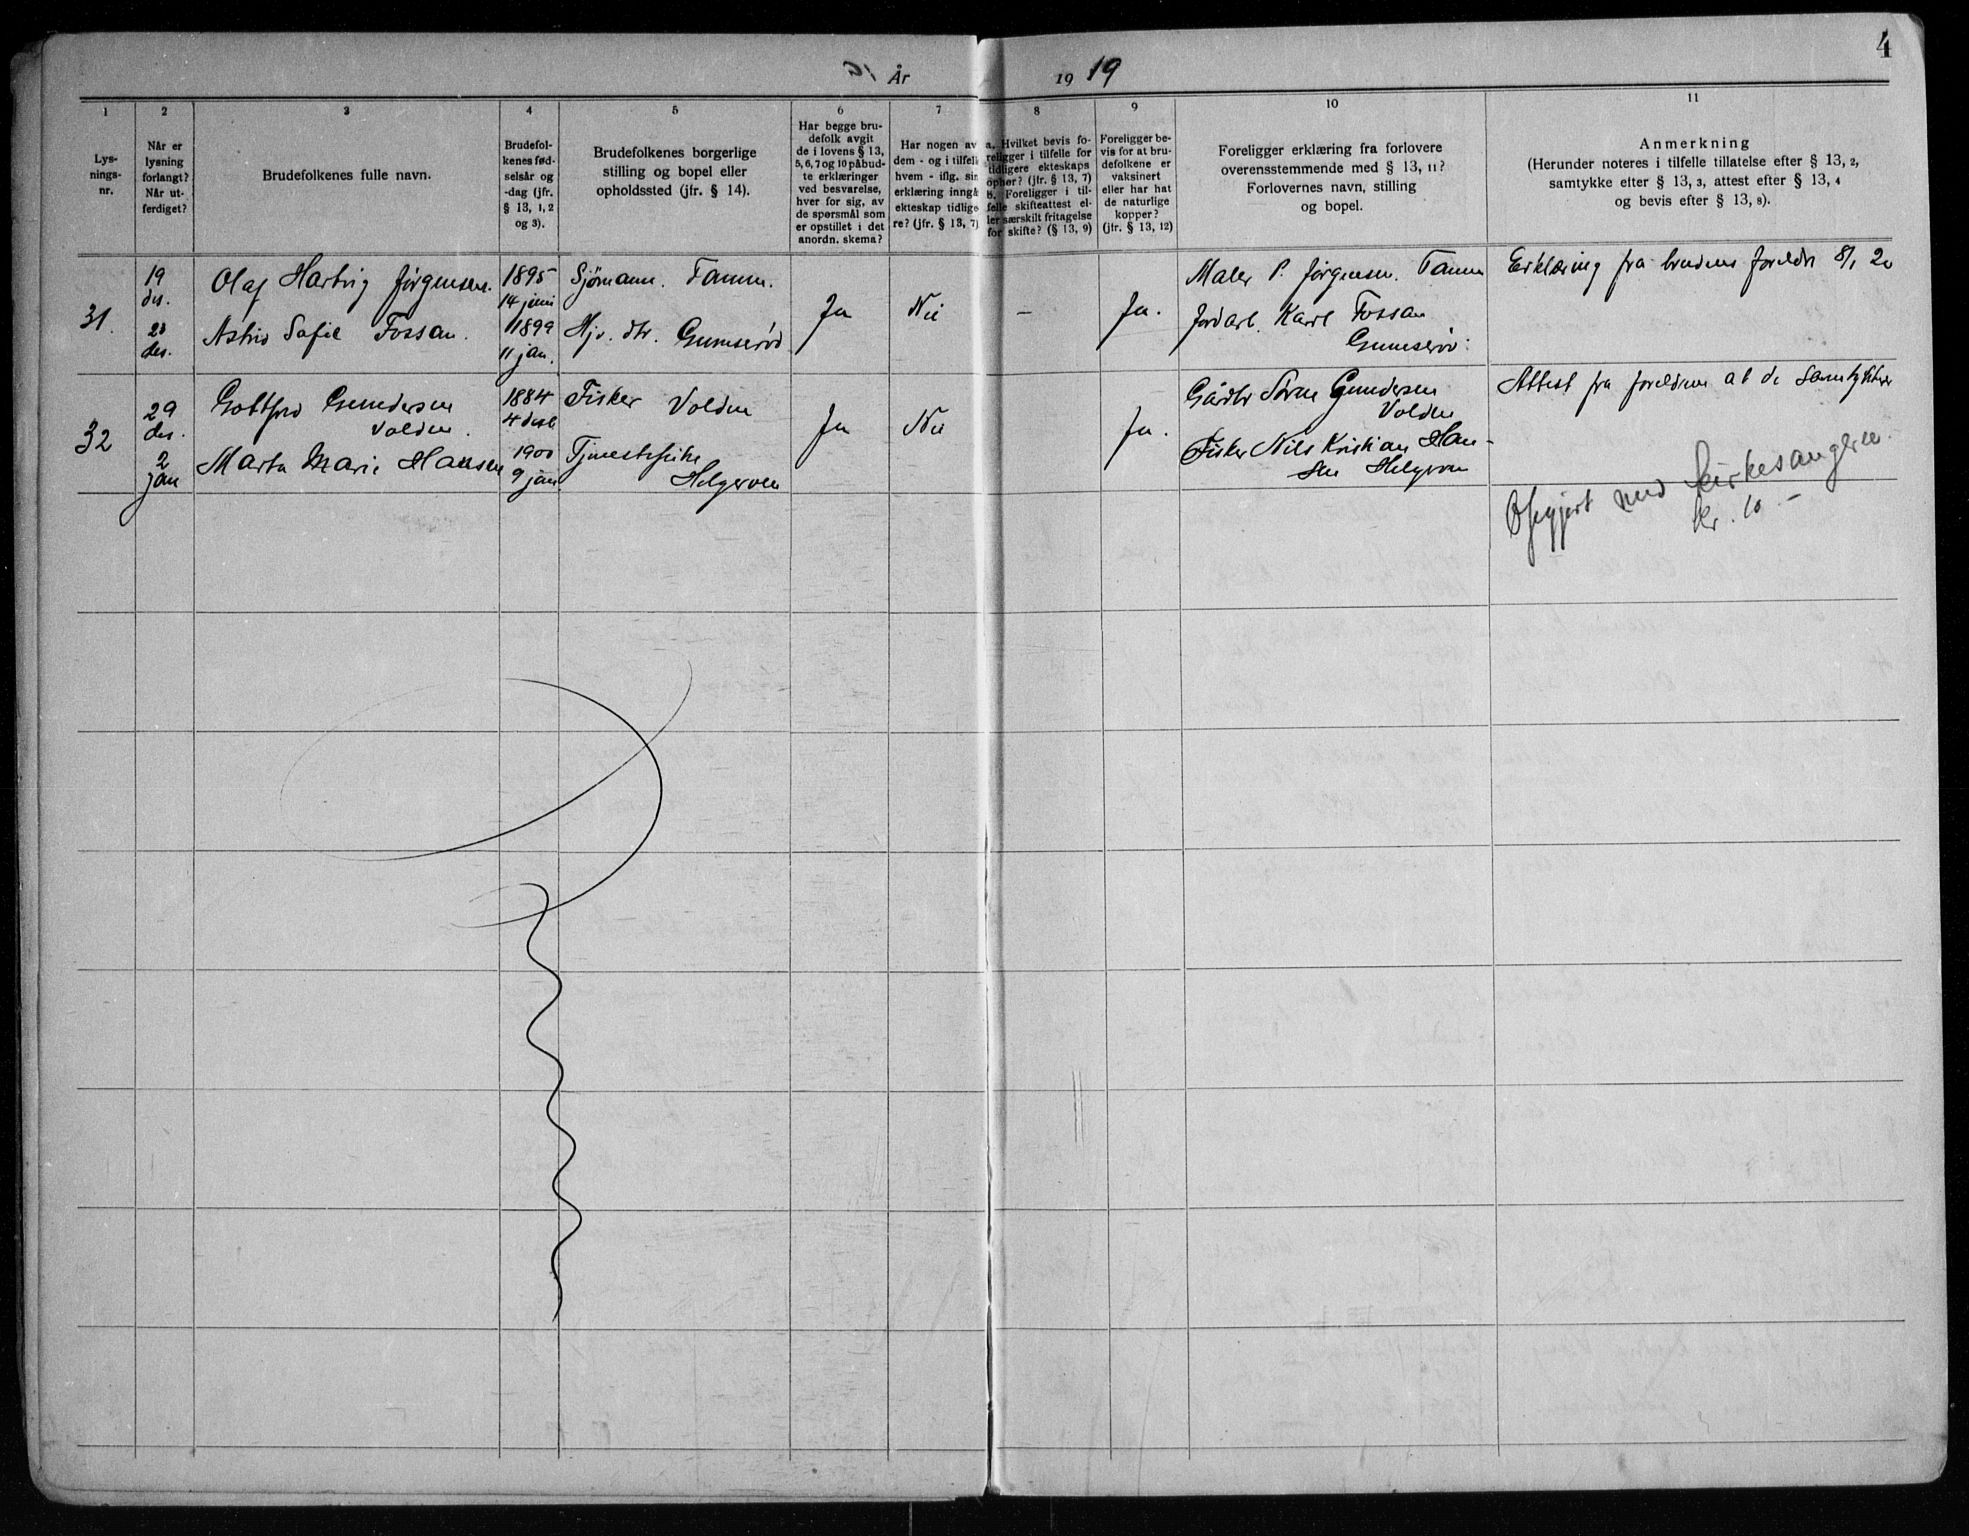 4
År 19 19
1
Lys-
nings-
nr.
2
Når er
lysning
forlangt?
Når ut-
ferdiget?
3
Brudefolkenes fulle navn.
4
Brudefol-
kenes fød-
selsår og
-dag (jfr.
§ 13, 1, 2
og 3).
5
Brudefolkenes borgerlige
stilling og bopel eller
opholdssted (jfr. § 14).
6
Har begge bru-
defolk avgit
de i lovens § 13,
5, 6, 7 og 10 påbud-
te erklæringer
ved besvarelse,
hver for sig, av
de spørsmål som
er opstillet i det
anordn. skema?
7
Har nogen av
dem - og i tilfelle
hvem - iflg. sin
erklæring inngå
ekteskap tidlige
re? (jfr. § 13, 7)
8
a. Hvilket bevis fo-
religger i tilfelle for
tidligere ekteskaps
ophør? (jfr. § 13, 7)
b. Foreligger i til-
felle skifteattest el-
ler særskilt fritagelse
for skifte? (§ 13, 9)
9
Foreligger be-
vis for at bru-
defolkene er
vaksinert
eller har hat
de naturlige
kopper?
(jfr. § 13, 12)
10
Foreligger erklæring fra forlovere
overensstemmende med § 13, 11?
Forlovernes navn, stilling
og bopel.
11
Anmerkning
(Herunder noteres i tilfelle tillatelse efter § 13, 2,
samtykke efter § 13, 3, attest efter § 13, 4
og bevis efter § 13, 8).
31.
19
des.
Olaf Hartvig Jørgensen.
1895
14 juni
Sjømann. Famm.
Ja
Nei
–
Ja.
Maler P. Jørgensen. Famm
Erklæring fra brudens foreldre 8/1 20
des.
Astrid Sofie Fossan.
1899
11 jan.
Hjv. dtr. Gumserød
Jordarb. Karl Fossan
Gumserød
32
29
des.
Gottfred Gundersen
Volden.
1884
4 des
Fisker Volden
Ja
Nei
Ja.
Gårdbr Søren Gundersen
Volden
Attest fra foreldrene at de samtykker
2
jan
Marta Marie Hansen
1900
9 jan.
Tjenestepike
Helgeroen
Fisker Nils Kristian Han-
sen Helgeroen
Opgjort med kirkesangeren.
kr. 10 –